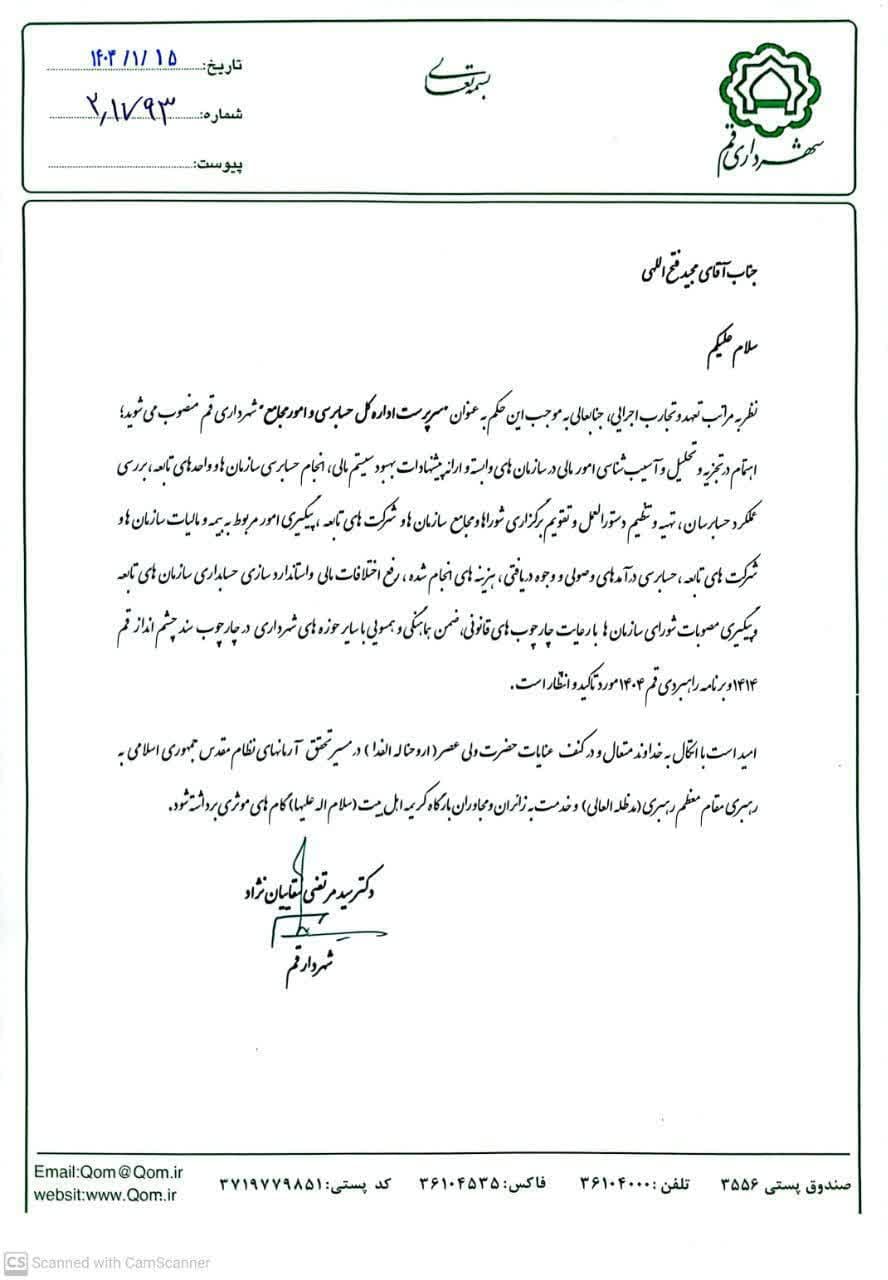 بسمه تعالی
شهرداری قم
تاریخ: ۱۴۰۳/۱/۱۵
شماره: ۲٫۱۷۹۳
پیوست:
جناب آقای مجید فتح اللهی
سلام علیکم
نظر به مراتب تعهد و تجارب اجرایی، جنابعالی به موجب این حکم به عنوان "سرپرست اداره کل حسابرسی و امور مجامع" شهرداری قم منصوب می شوید؛
اهتمام در تجزیه و تحلیل و آسیب شناسی امور مالی در سازمان های وابسته و ارائه پیشنهادات بهبود سیستم مالی، انجام حسابرسی سازمان ها و واحدهای تابعه، بررسی
عملکرد حسابرسان، تهیه و تنظیم دستورالعمل و تقویم برگزاری شوراها و مجامع سازمان ها و شرکت های تابعه، پیگیری امور مربوط به بیمه و مالیات سازمان ها و
شرکت های تابعه، حسابرسی درآمدهای وصولی و وجوه دریافتی، هزینه های انجام شده، رفع اختلافات مالی و استاندارد سازی حسابداری سازمان های تابعه
و پیگیری مصوبات شورای سازمان ها با رعایت چارچوب های قانونی، ضمن هماهنگی و همسویی با سایر حوزه های شهرداری در چارچوب سند چشم انداز قم
۱۴۱۴ و برنامه راهبردی قم ۱۴۰۴ مورد تاکید و انتظار است.
امید است با اتکال به خداوند متعال و در کنف عنایات حضرت ولی عصر (ارواحنا له الفدا) در مسیر تحقق آرمانهای نظام مقدس جمهوری اسلامی به
رهبری مقام معظم رهبری (مدظله العالی) و خدمت به زائران و مجاوران بارگاه کریمه اهل بیت (سلام اله علیها) گام های موثری برداشته شود.
دکتر سید مرتضی سقاییان نژاد
شهردار قم
صندوق پستی ۳۵۵۶ تلفن: ۳۶۱۰۴۰۰۰ فاکس: ۳۶۱۰۴۵۳۵ کد پستی: ۳۷۱۹۷۷۹۸۵۱
Email:Qom@Qom.ir
websit:www.Qom.ir
CS Scanned with CamScanner